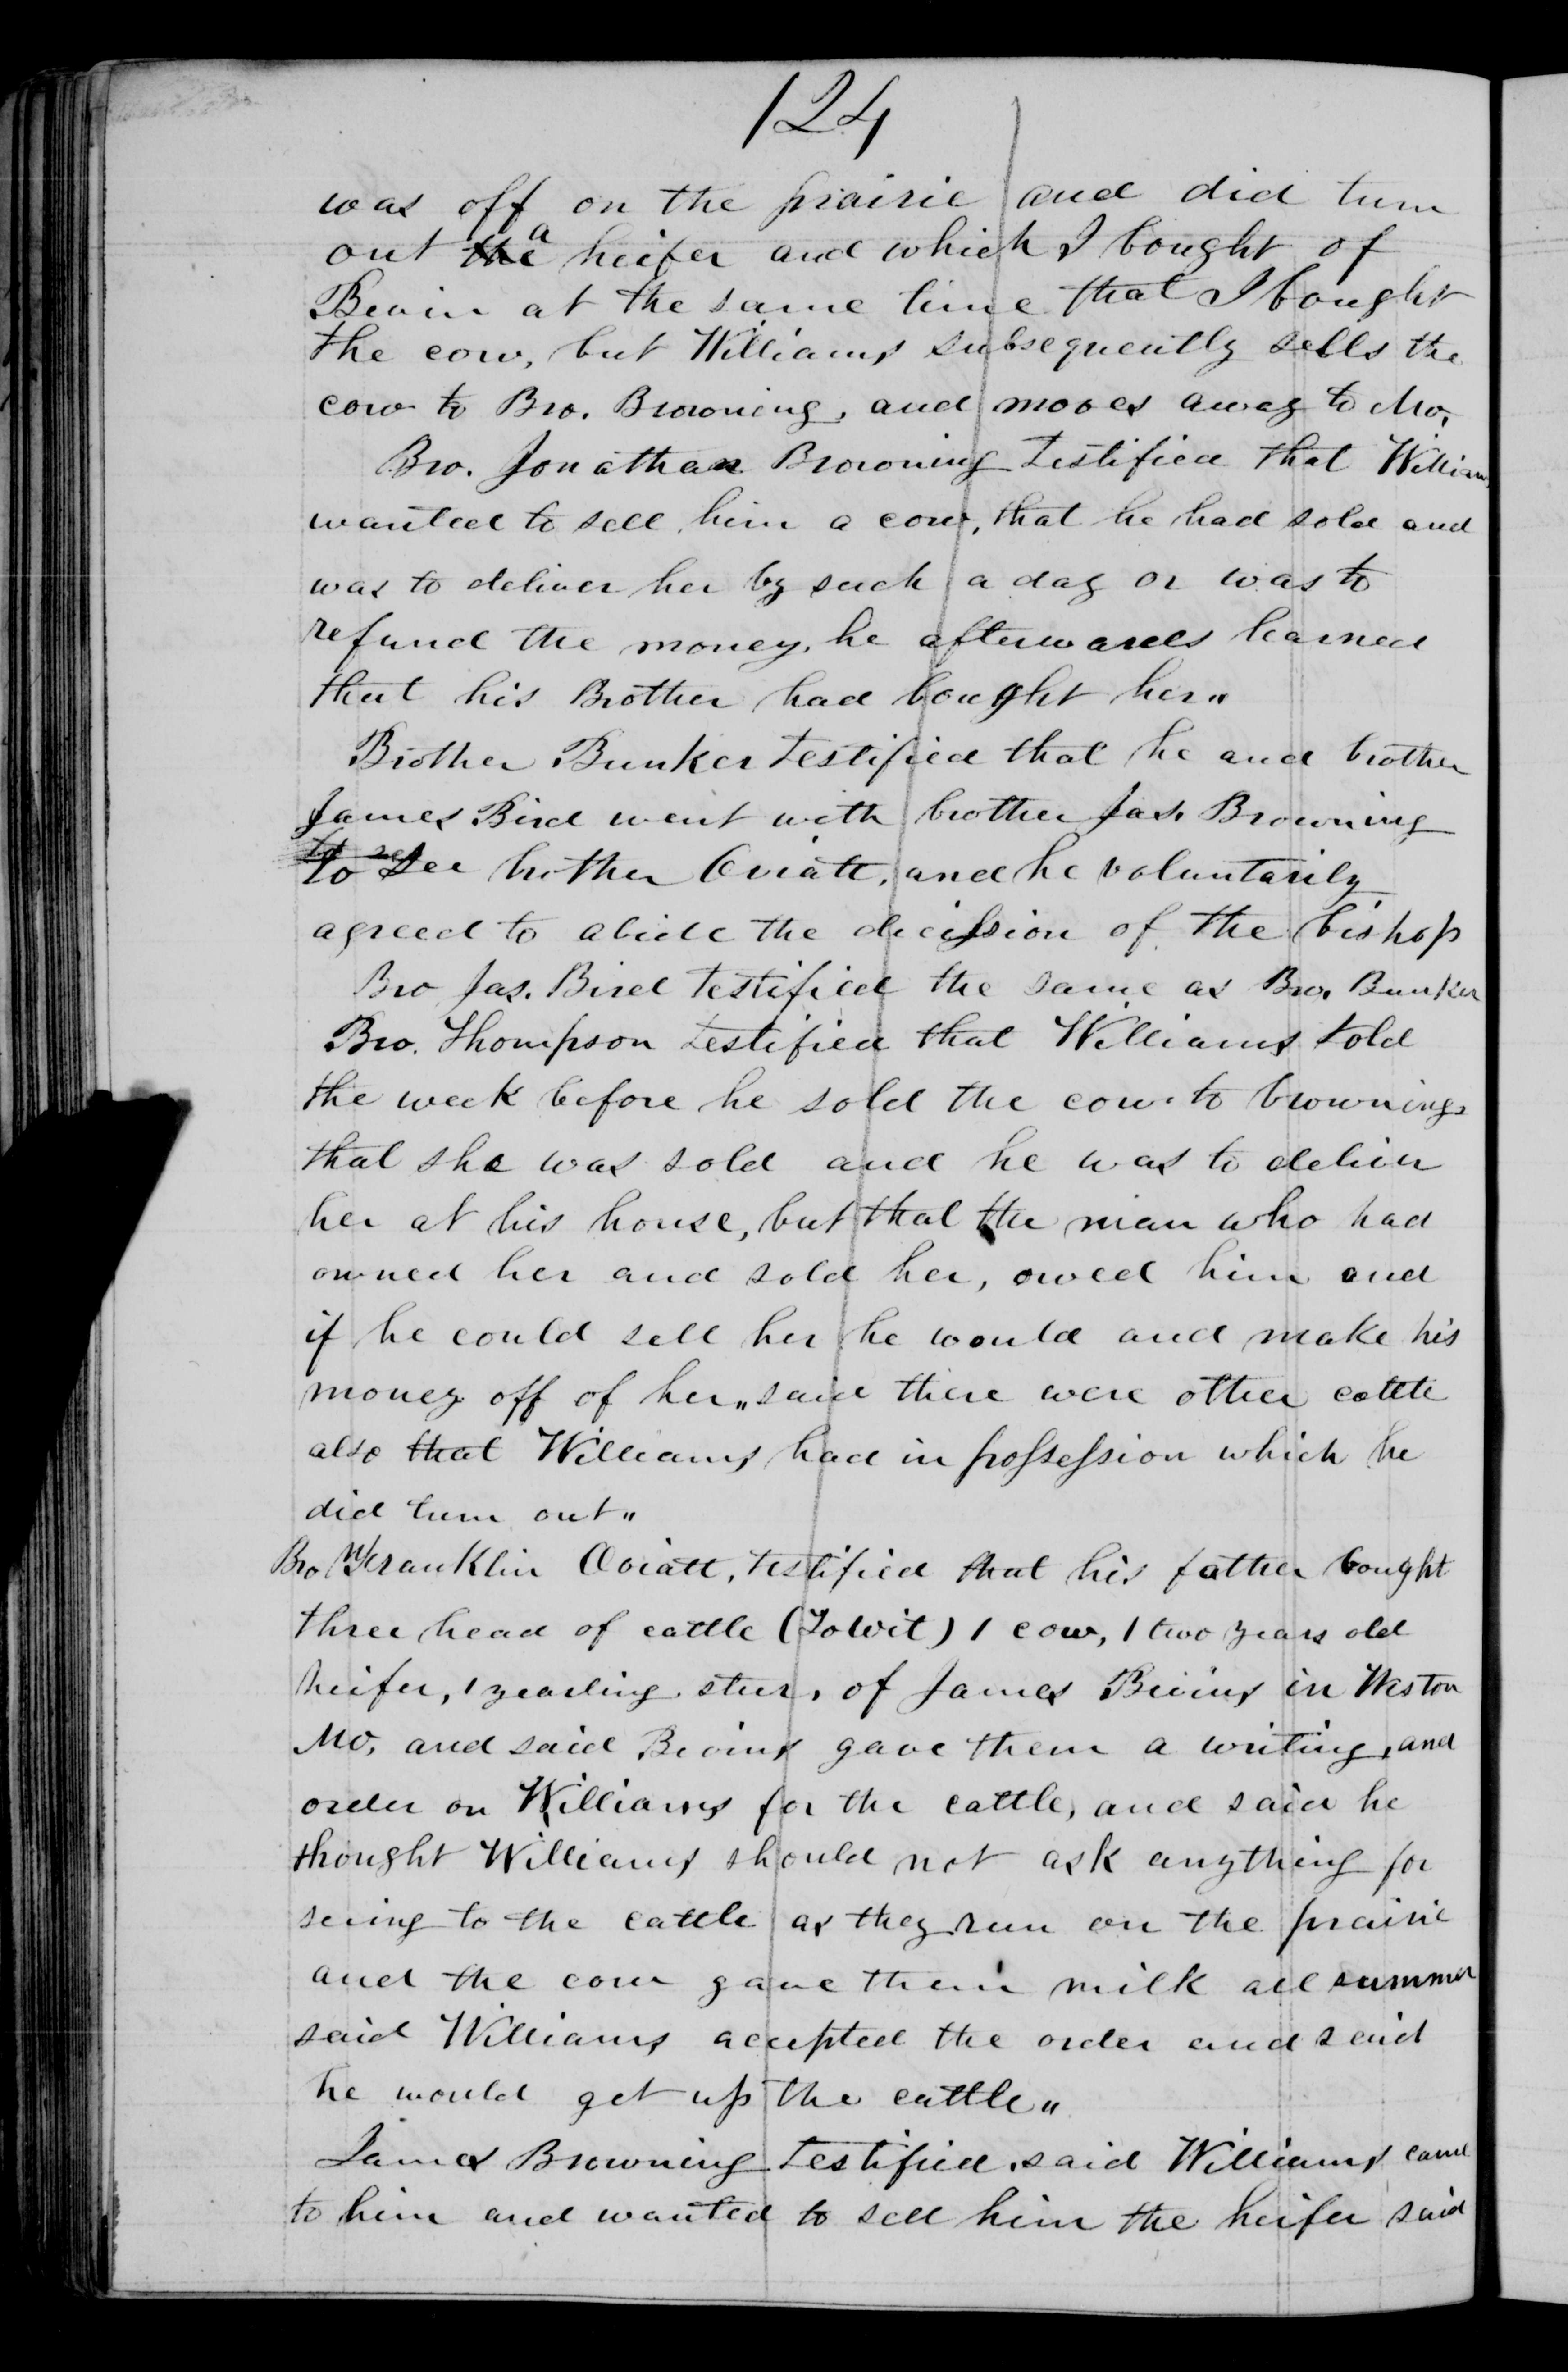 124
was off on the prairie and did turn
out the a heifer and which I bought of
Bevin at the same time that I bought
the cow, but Williams subsequently sells the
cow to Bro. Browning, and mooves away to Mo,
Bro. Jonathan Browning testified that Williams
wanted to sell him a cow, that he had sold and
was to deliver her by such a day or was to
refund the money, he afterwards learned
that his Brother had bought her„
Brother Bunker testified that he and brother
James Bird went with brother Jas. Browning
to see
to See brother Oviatt, and he voluntarily
agreed to abide the decission of the bishop
Bro Jas. Bird testified the same as Bro. Bunker
Bro. Thompson testified that Williams told
the week before he sold the cow to brownings
that she was sold and he was to deliver
her at his house, but that the man who had
owned her and sold her, owed him and
if he could sell her he would and make his
money off of her„ said there were other cattle
also that Williams had in possession which he
did turn out„
Bro Franklin Oviatt, testified that his father bought
three head of cattle (Towit) 1 cow, 1 two years old
heifer, 1 yearling steer, of James Bivins in Weston
Mo, and said Bivins gave them a writing, and
order on Williams for the cattle, and said he
thought Williams should not ask anything for
seeing to the cattle as they run on the prairie
and the cow gave them milk all summer
said Williams accepted the order and said
he would get up the cattle„
James Browning testified, said Williams came
to him and wanted to sell him the heifer said